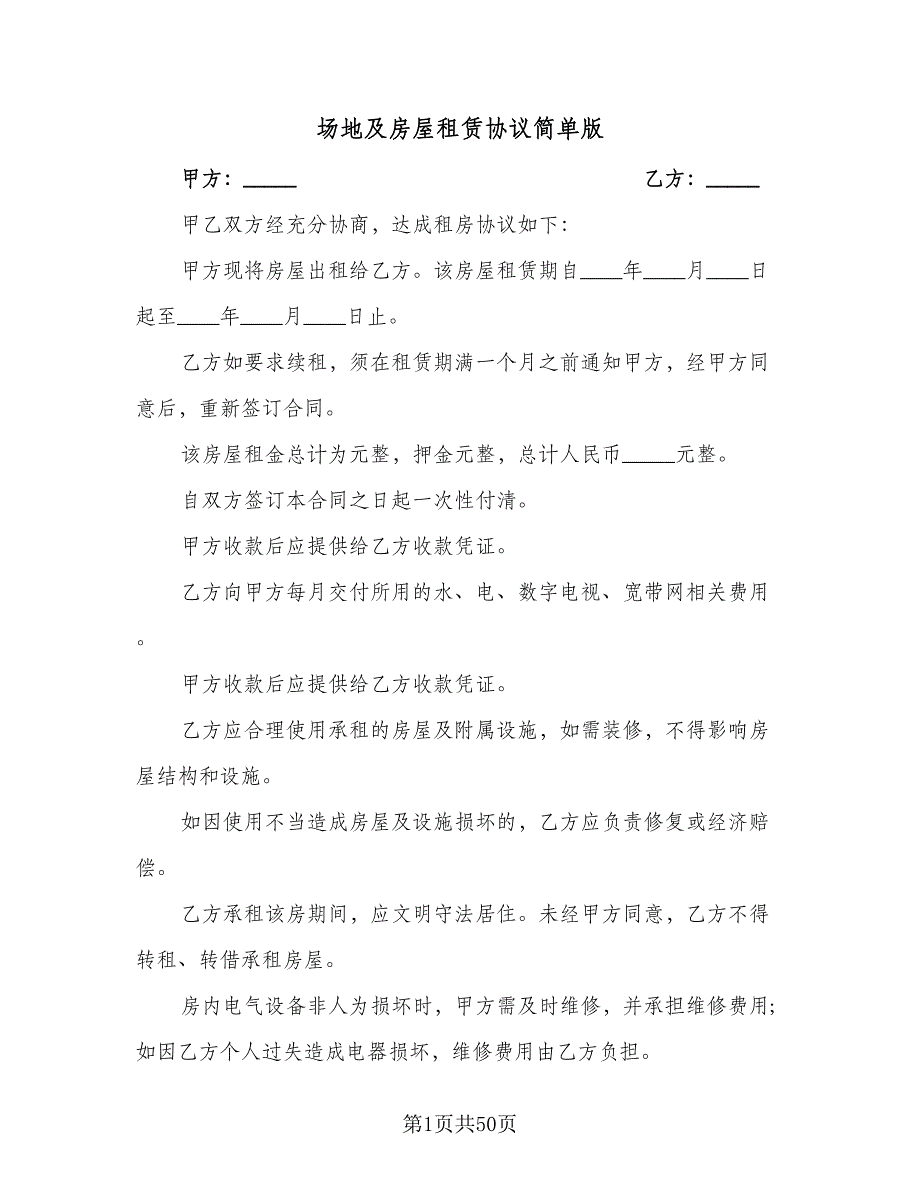 场地及房屋租赁协议简单版
甲方：_____ 乙方：_____
甲乙双方经充分协商，达成租房协议如下：
甲方现将房屋出租给乙方。该房屋租赁期自____年____月____日
起至____年____月____日止。
乙方如要求续租，须在租赁期满一个月之前通知甲方，经甲方同
意后，重新签订合同。
该房屋租金总计为元整，押金元整，总计人民币_____元整。
自双方签订本合同之日起一次性付清。
甲方收款后应提供给乙方收款凭证。
乙方向甲方每月交付所用的水、电、数字电视、宽带网相关费用
。
甲方收款后应提供给乙方收款凭证。
乙方应合理使用承租的房屋及附属设施，如需装修，不得影响房
屋结构和设施。
如因使用不当造成房屋及设施损坏的，乙方应负责修复或经济赔
偿。
乙方承租该房期间，应文明守法居住。未经甲方同意，乙方不得
转租、转借承租房屋。
房内电气设备非人为损坏时，甲方需及时维修，并承担维修费用;
如因乙方个人过失造成电器损坏，维修费用由乙方负担。
第1页共50页